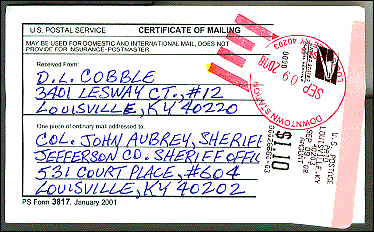 U.S. POSTAL SERVICE CERTIFICATE OF MAILING
MAY BE USED FOR DOMESTIC AND INTERNATIONAL MAIL, DOES NOT
PROVIDE FOR INSURANCE-POSTMASTER
Received From:
D.L. COBBLE
3401 LESWAY CT., #12
LOUISVILLE, KY 40220
One piece of ordinary mail addressed to:
COL. JOHN AUBREY, SHERIFF
JEFFERSON CO. SHERIFF OFFIC
531 COURT PLACE, #604
LOUISVILLE, KY 40202
PS Form 3817, January 2001
40203
SEP 09
DOWNTOWN STATION
0000
$1.10
U.S. POSTAGE
PAID
LOUISVILLE, KY
40203
AMOUNT